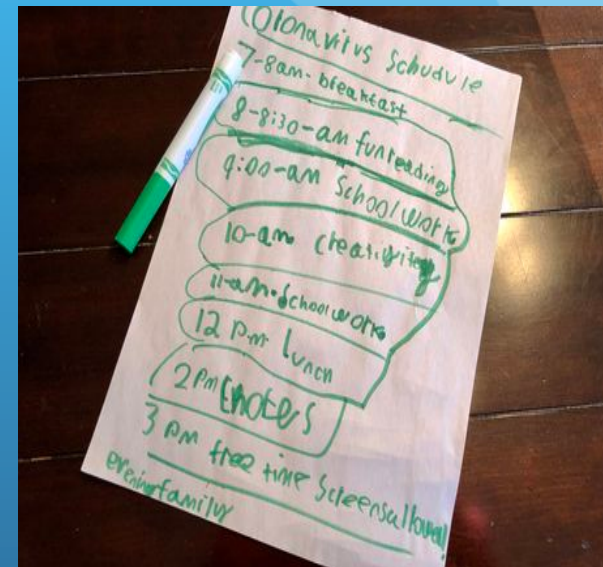 Coronavirus Schudule
7-8am- breakfast
8-8:30-am fun reading
9:00-am School work
10-am creativitey
11-am-School work
12 pm lunch
2 pm Chores
3 pm free time Screens allowed!
evening family